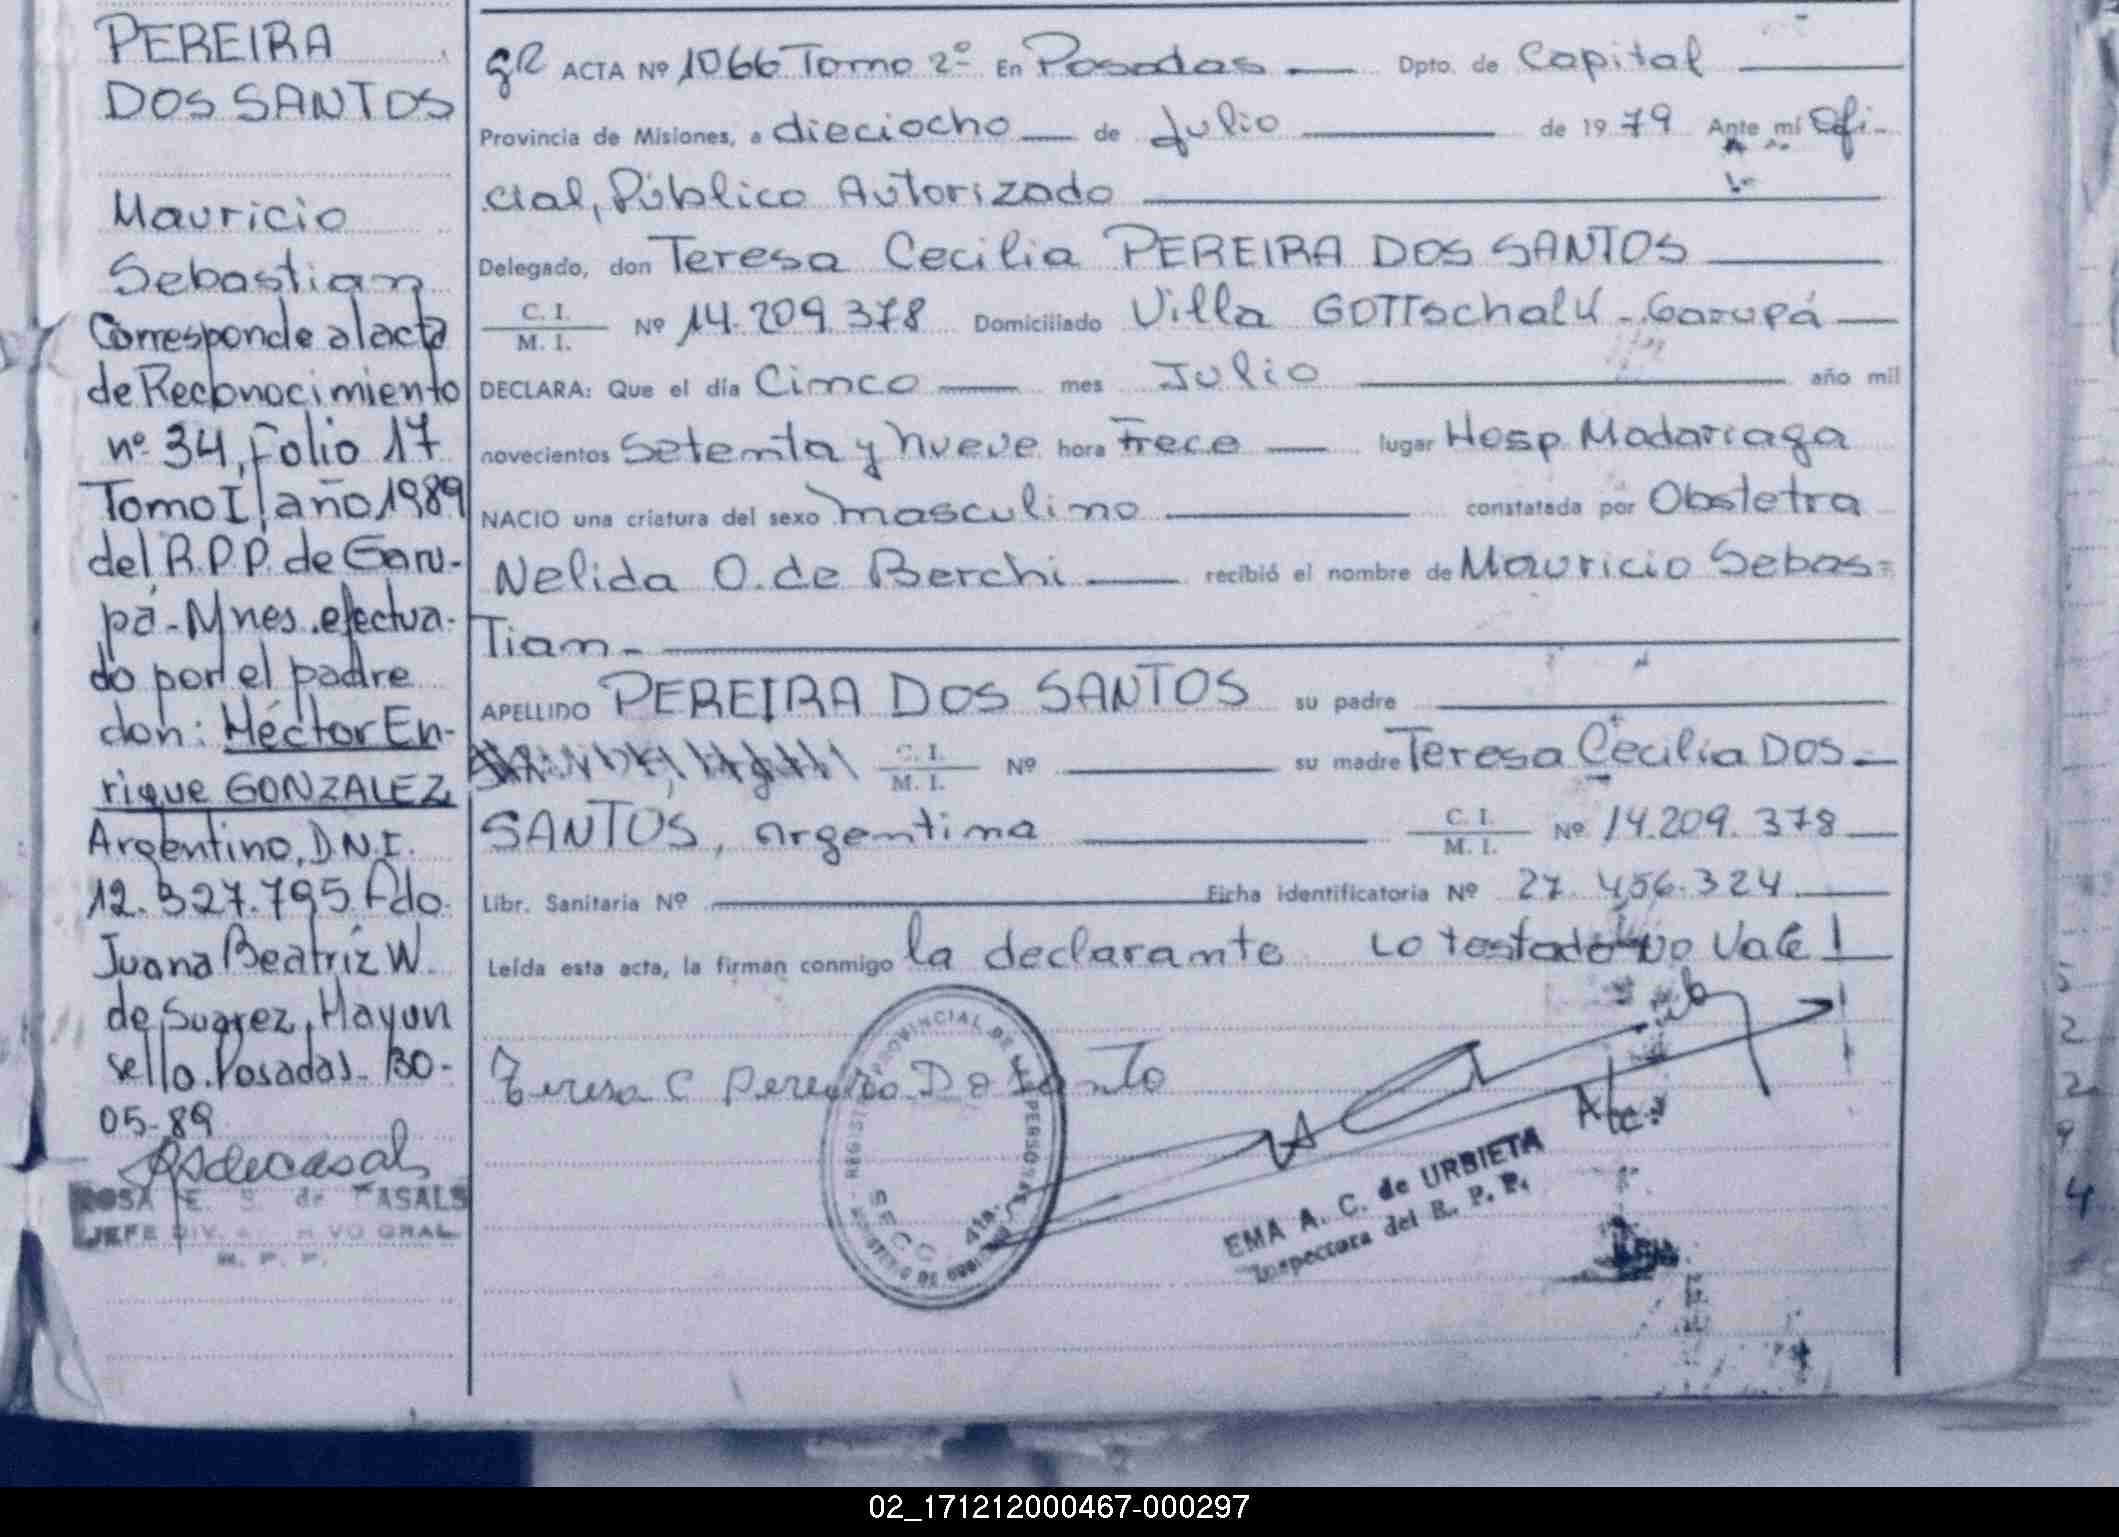 PEREIRA
DOS SANTOS
Mauricio
Sebastian
Corresponde al acta
de Reconocimiento
nº 34, folio 17
Tomo I, año 1989
del R.P.P. de Garu-
pá - Mnes. efectua-
do por el padre
don: Héctor En-
rique GONZALEZ,
Argentino, D.N.I.
12.327.795. Fdo.
Juana Beatriz W.
de Suarez, Hay un
sello. Posadas - 30-
05-89
ROSA E. S. de CASALS
JEFE DIV. GRAL.
R. P. P.
gR ACTA Nº 1066 Tomo 2º En Posadas Dpto. de Capital
Provincia de Misiones, a dieciocho de Julio de 1979 Ante mí Ofi-
cial, Público Autorizado
Delegado, don Teresa Cecilia PEREIRA DOS SANTOS
C. I.
M. I. Nº 14.209.378 Domiciliado Villa GOTTschalk - Garupá
DECLARA: Que el día Cinco mes Julio año mil
novecientos Setenta y nueve hora Trece lugar Hosp. Madariaga
NACIO una criatura del sexo masculino constatada por Obstetra
Nelida O. de Berchi recibió el nombre de Mauricio Sebas=
Tian -
APELLIDO PEREIRA DOS SANTOS su padre
C. I.
M. I. Nº su madre Teresa Cecilia DOS
SANTOS, argentina C. I.
M. I. Nº 14.209.378
Libr. Sanitaria Nº Ficha identificatoria Nº 27.456.324
Leída esta acta, la firman conmigo la declarante Lo testado No Vale
Teresa C Pereira Do Santo
REGISTRO PROVINCIAL DE LAS PERSONAS
SECC. 4ta.
MINISTERIO DE GOBIERNO
EMA A. C. de URBIETA
Inspectora del R. P. P.
5
2
2
9
4
02_171212000467-000297